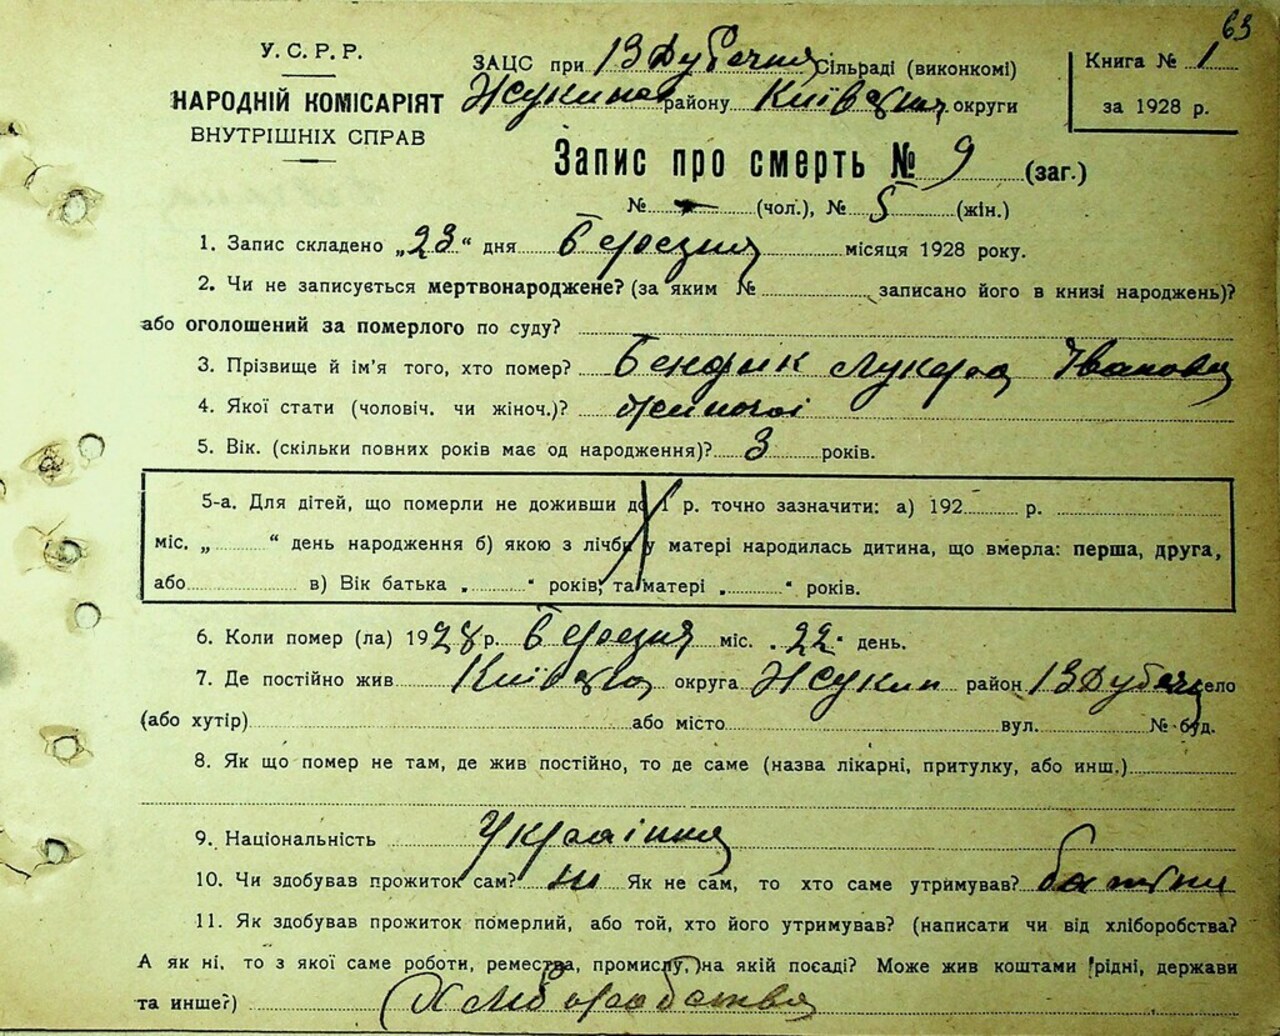 63
У.С.Р.Р.
НАРОДНІЙ КОМІСАРІЯТ
ВНУТРІШНІХ СПРАВ
ЗАЦС при Сільраді (виконкомі)
району округи
Книга № 1
за 1928 р.
Запис про смерть № 9 (заг.)
№ - (чол.), № 5 (жін.)
1. Запис складено „23“ дня Березня місяця 1928 року.
2. Чи не записується мертвонароджене? (за яким № записано його в книзі народжень)?
або оголошений за померлого по суду?
3. Прізвище й ім'я того, хто помер? Бендрик Лукера Івановна
4. Якої стати (чоловіч. чи жіноч.)? жіночої
5. Вік. (скільки повних років має од народження)? 3 років.
5-а. Для дітей, що померли не доживши до 1 р. точно зазначити: а) 192 р.
міс. „ “ день народження б) якою з лічби у матері народилась дитина, що вмерла: перша, друга,
або в) Вік батька „ “ років, та матері „ “ років.
6. Коли помер (ла) 1928 р. Березня міс. „22“ день.
7. Де постійно жив округа Жукин район село
(або хутір) або місто вул. № буд.
8. Як що помер не там, де жив постійно, то де саме (назва лікарні, притулку, або инш.)
9. Національність Українка
10. Чи здобував прожиток сам? ні Як не сам, то хто саме утримував? батьки
11. Як здобував прожиток померлий, або той, хто його утримував? (написати чи від хліборобства?
А як ні, то з якої саме роботи, ремества, промислу, на якій посаді? Може жив коштами рідні, держави
та инше?) Хліборобства